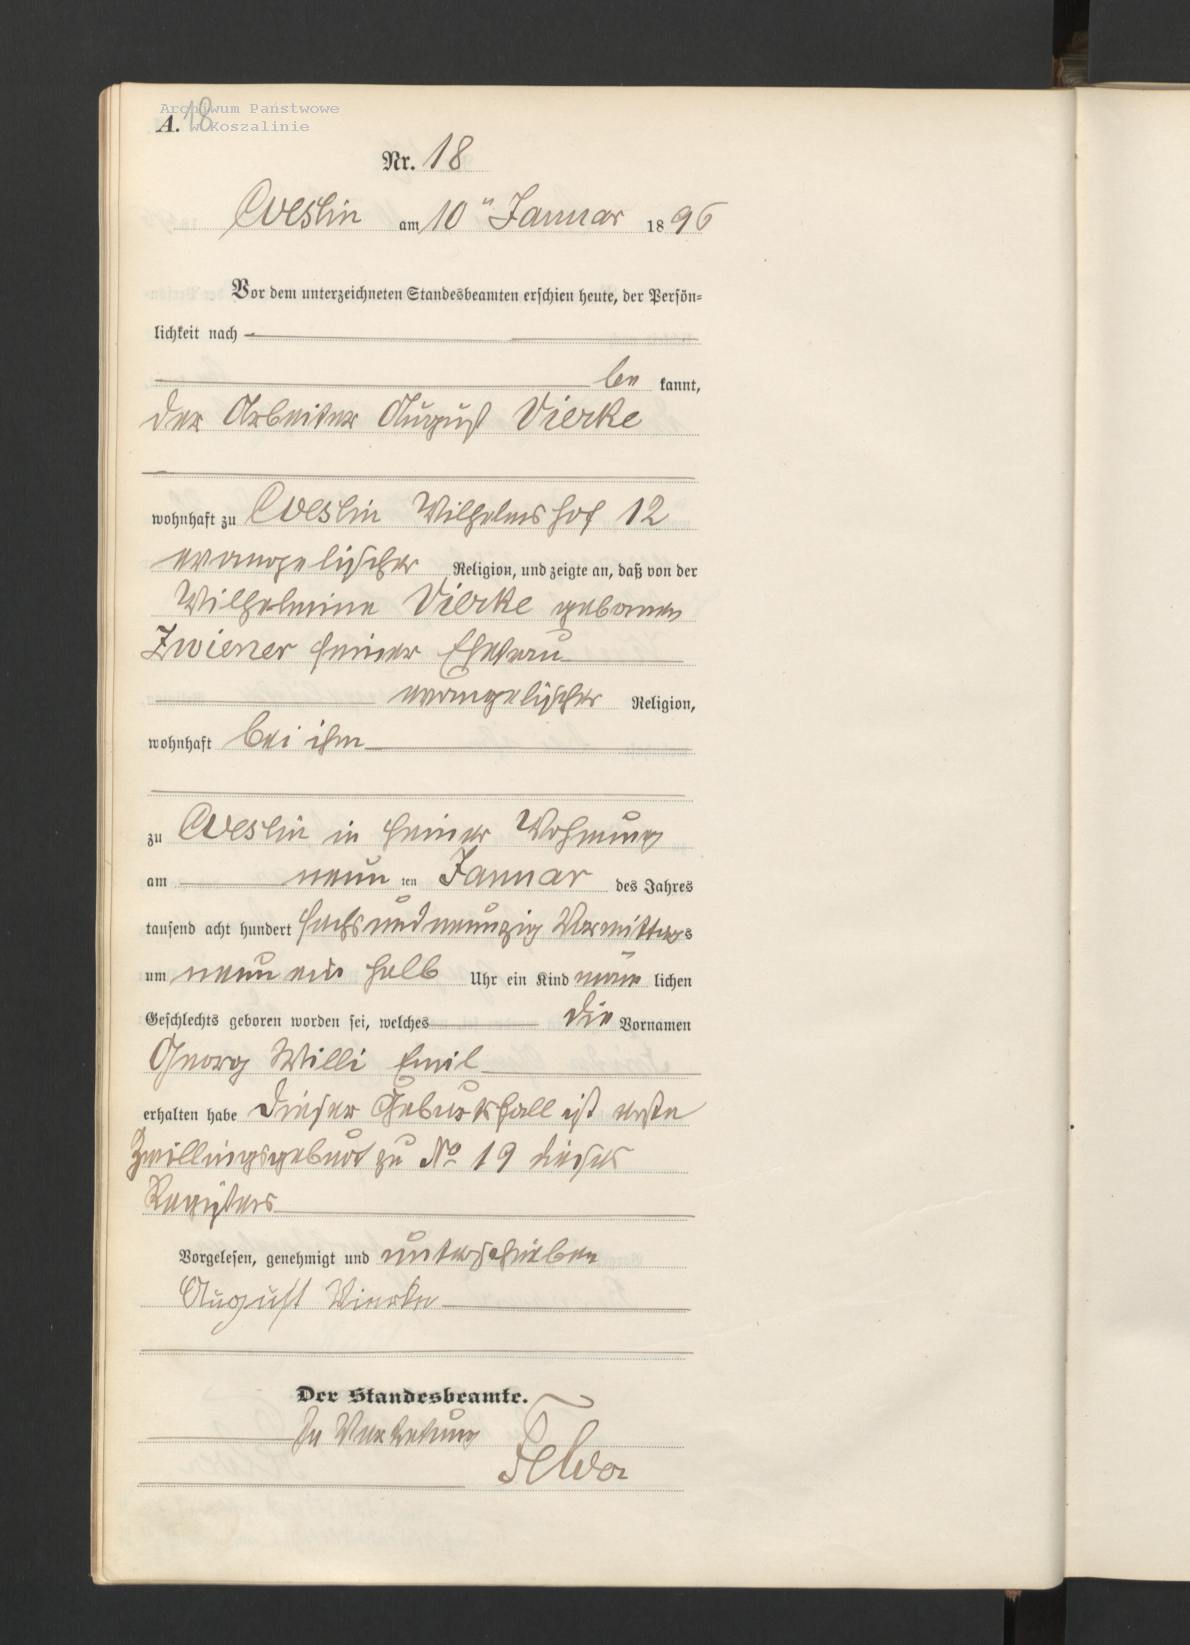 Archiwum Państwowe
w Koszalinie
A. 18
Nr. 18
Coeslin am 10ten Januar 1896
Vor dem unterzeichneten Standesbeamten erschien heute, der Persön-
lichkeit nach
be kannt,
der Arbeiter August Vierke
wohnhaft zu Coeslin Wilhelmshof 12
evangelischer Religion, und zeigte an, daß von der
Wilhelmine Vierke geborenen
Zwiener seiner Ehefrau
evangelischer Religion,
wohnhaft bei ihm
zu Coeslin in seiner Wohnung
am neun ten Januar des Jahres
tausend acht hundert sechsundneunzig Vormittags
um neun ein halb Uhr ein Kind männ lichen
Geschlechts geboren worden sei, welches die Vornamen
Georg Willi Emil
erhalten habe Dieser Geburtsfall ist erste
Zwillingsgeburt zu No 19 dieses
Registers
Vorgelesen, genehmigt und unterschrieben
August Vierke
Der Standesbeamte.
In Vertretung